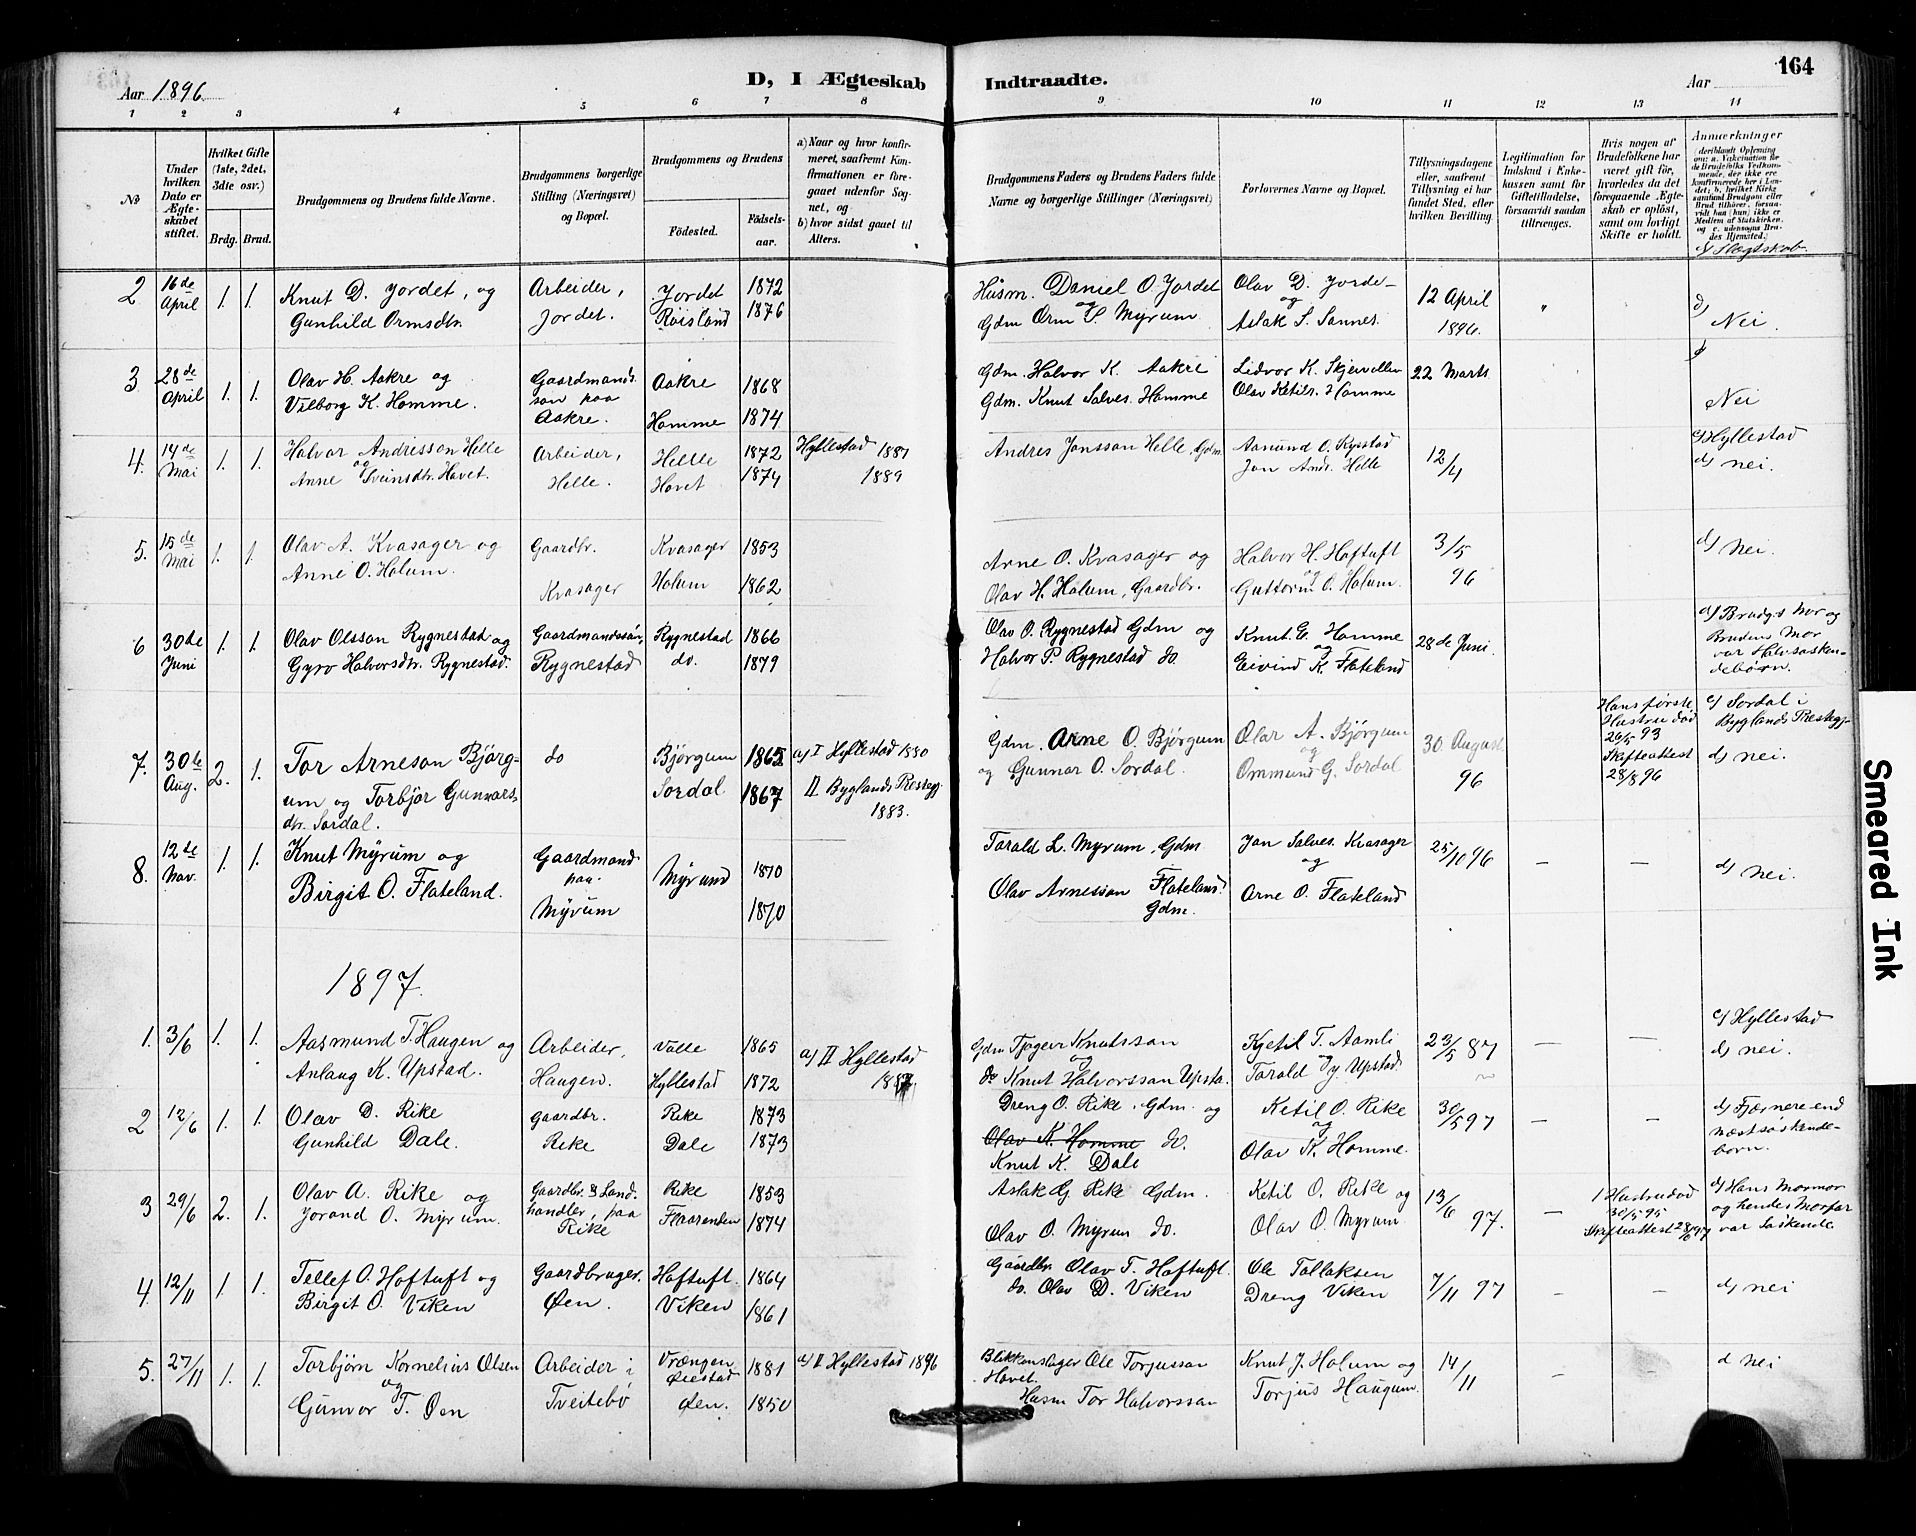 164
Aar 1896
D, I Ægteskab Indtraadte.
Aar
1 2 3 4 5 6 7 8 9 10 11 12 13 14
No
Under hvilken Dato er Ægteskabet stiftet.
Hvilket Gifte (1ste, 2det, 3dte osv.)
Brdg. Brud.
Brudgommens og Brudens fulde Navne.
Brudgommens borgerlige Stilling (Næringsvei) og Bopæl.
Brudgommens og Brudens
Fødested.
Fødselsaar.
a) Naar og hvor konfirmeret, saafremt Konfirmationen er foregaaet udenfor Sognet, og
b) hvor sidst gaaet til Alters.
Brudgommens Faders og Brudens Faders fulde Navne og borgerlige Stillinger (Næringsvei)
Forlovernes Navne og Bopæl.
Tillysningsdagene eller, saafremt Tillysning ei har fundet Sted, efter hvilken Bevilling.
Legitimation for Indskud i Enkekassen samt for Giftetilladelse, forsaavidt saadan tiltrænges.
Hvis nogen af Brudefolkene har været gift før, hvorledes da det foregaaende Ægteskab er opløst, samt om lovligt Skifte er holdt.
Anmærkninger (deriblandt Oplysning om: a. Vakcination for de Brudefolks Vedkommende, der ikke ere konfirmerede her i Landet; b. hvilket Kirkesamfund Brudgom eller Brud tilhører, forsaavidt han (hun) ikke er Medlem af Statskirken, og c. udensogns Brudes Hjemsted.)
d) Slægtskab
2 16de April 1. 1. Knut D. Jordet, og Gunhild Ormsdtr. Arbeider, Jordet. Jordet Røisland 1872 1876 Husm. Daniel O. Jordet og Gdm Orm S. Myrum Olav D. Jorde- og Aslak S. Sannes. 12 April 1896. " d) Nei.
3 28de April 1. 1. Olav H. Aakre og Vilborg K. Homme. Gaardmands. søn paa Aakre. Aakre Homme 1868 1874 Gdm. Halvor K. Aakre Gdm. Knut Salves. Homme Lidvor K. Skjevellen Olav Ketilr. Homme 22 Marts d Nei
4. 14de Mai 1. 1. Halvor Andresson Helle og Anne Sveinsdtr. Hovet. Arbeider, Helle. Helle Hovet 1872 1874 Hyllestad 1887 1889 Andres Jonsson Helle, Gdm. Aamund O. Rysstad Jon Andr. Helle 12/4 c) Hyllestad d) nei.
5. 15de Mai 1. 1. Olav A. Kvasager og Anne O. Holum. Gaardbr. Kvasager Kvasager Holum 1853 1862 Arne O. Kvasager og Olav H. Holum, Gaardbr. Halvor H. Hoftuft og Guttorm O. Holum. 3/5 96 d) nei.
6 30de Juni 1. 1. Olav Olsson Rygnestad og Gyro Halvorsdtr. Rygnestad. Gaardmandssøn, Rygnestad Rygnestad do. 1866 1879 Olav O. Rygnestad Gdm og Halvor P. Rygnestad do. Knut G. Homme og Eivind K. Flateland 28de Juni. d) Brudgs Mor og Brudens Mor var Halvsøskendebørn.
7. 30te Aug. 2. 1. Tor Arneson Bjørgum og Torbjør Gunnarsdtr. Sordal. do Bjørgum Sordal 1865 1867 a) I Hyllestad 1880 II Byglands Prestegj. 1883. Gdm. Arne O. Bjørgum og Gunnar O. Sordal. Olav A. Bjørgum og Ommund G. Sordal 30 August. 96 Hans første Hustru død 26/5 93 Skifteattest 28/8 96 c) Sordal i Byglands Prestegj. d) nei.
8. 12de Nov. 1. 1. Knut Myrum og Birgit O. Flateland. Gaardmand paa Myrum Myrum 1870 1870 Tarald L. Myrum, Gdm Olav Arnesson Flateland. Gdm. Jon Salves. Kvasager og Arne O. Flateland 25/10 96 — — d) nei.
1897.
1. 3/6 1. 1. Aasmund T. Haugen og Anlaug K. Upstad. Arbeider, Haugen. Valle Hyllestad 1865 1872 a) II Hyllestad Gdm Tjøgeir Knutsson og do Knut Halvorsson Upsta. Kjetil T. Aamli og Tarald Upstad. 23/5 87 — — c) Hyllestad d) nei.
2 12/6 1. 1. Olav D. Rike Gunhild Dale. Gaardbr. Rike Rike Dale 1873 1873 Dreng O. Rike, Gdm. og Olav K. Homme do. Knut K. Dale Ketil O. Rike og Olav K. Homme. 30/5 97 — — d) Fjærnere end Næstsøskendebørn.
3 29/6 2. 1. Olav A. Rike og Jorand O. Myrum. Gaardbr. & Landhandler, paa Rike Rike Flaarenden 1853 1874 Aslak G. Rike Gdm. Olav O. Myrum do. Ketil O. Rike og Olav O. Myrum. 13/6 97. — 1 Hustru død 30/5 95 Skifteattest 28/6 97 d) Hans Mormor og hendes Morfar var Søskende
4. 12/11 1. 1. Tellef O. Hoftuft og Birgit O. Viken Gaardbruger. Øen. Hoftuft. Viken 1864 1861 Gaardbr. Olav T. Hoftuft. do. Olav D. Viken Ole Tallaksen Dreng Viken 7/11 97 — — d) nei
5. 27/11 1. 1. Torbjørn Kornelius Olsen og Gunvor T. Øen Arbeider i Tveitebø Vrængen Øiestad Øen. 1881 1850 a) I Hyllestad 1896 Blikkenslager Ole Torjussan Hovet. Husm Tor Halvorssan Knut J. Holum og Torjus Haugum. 14/11 — — d nei
Smeared Ink